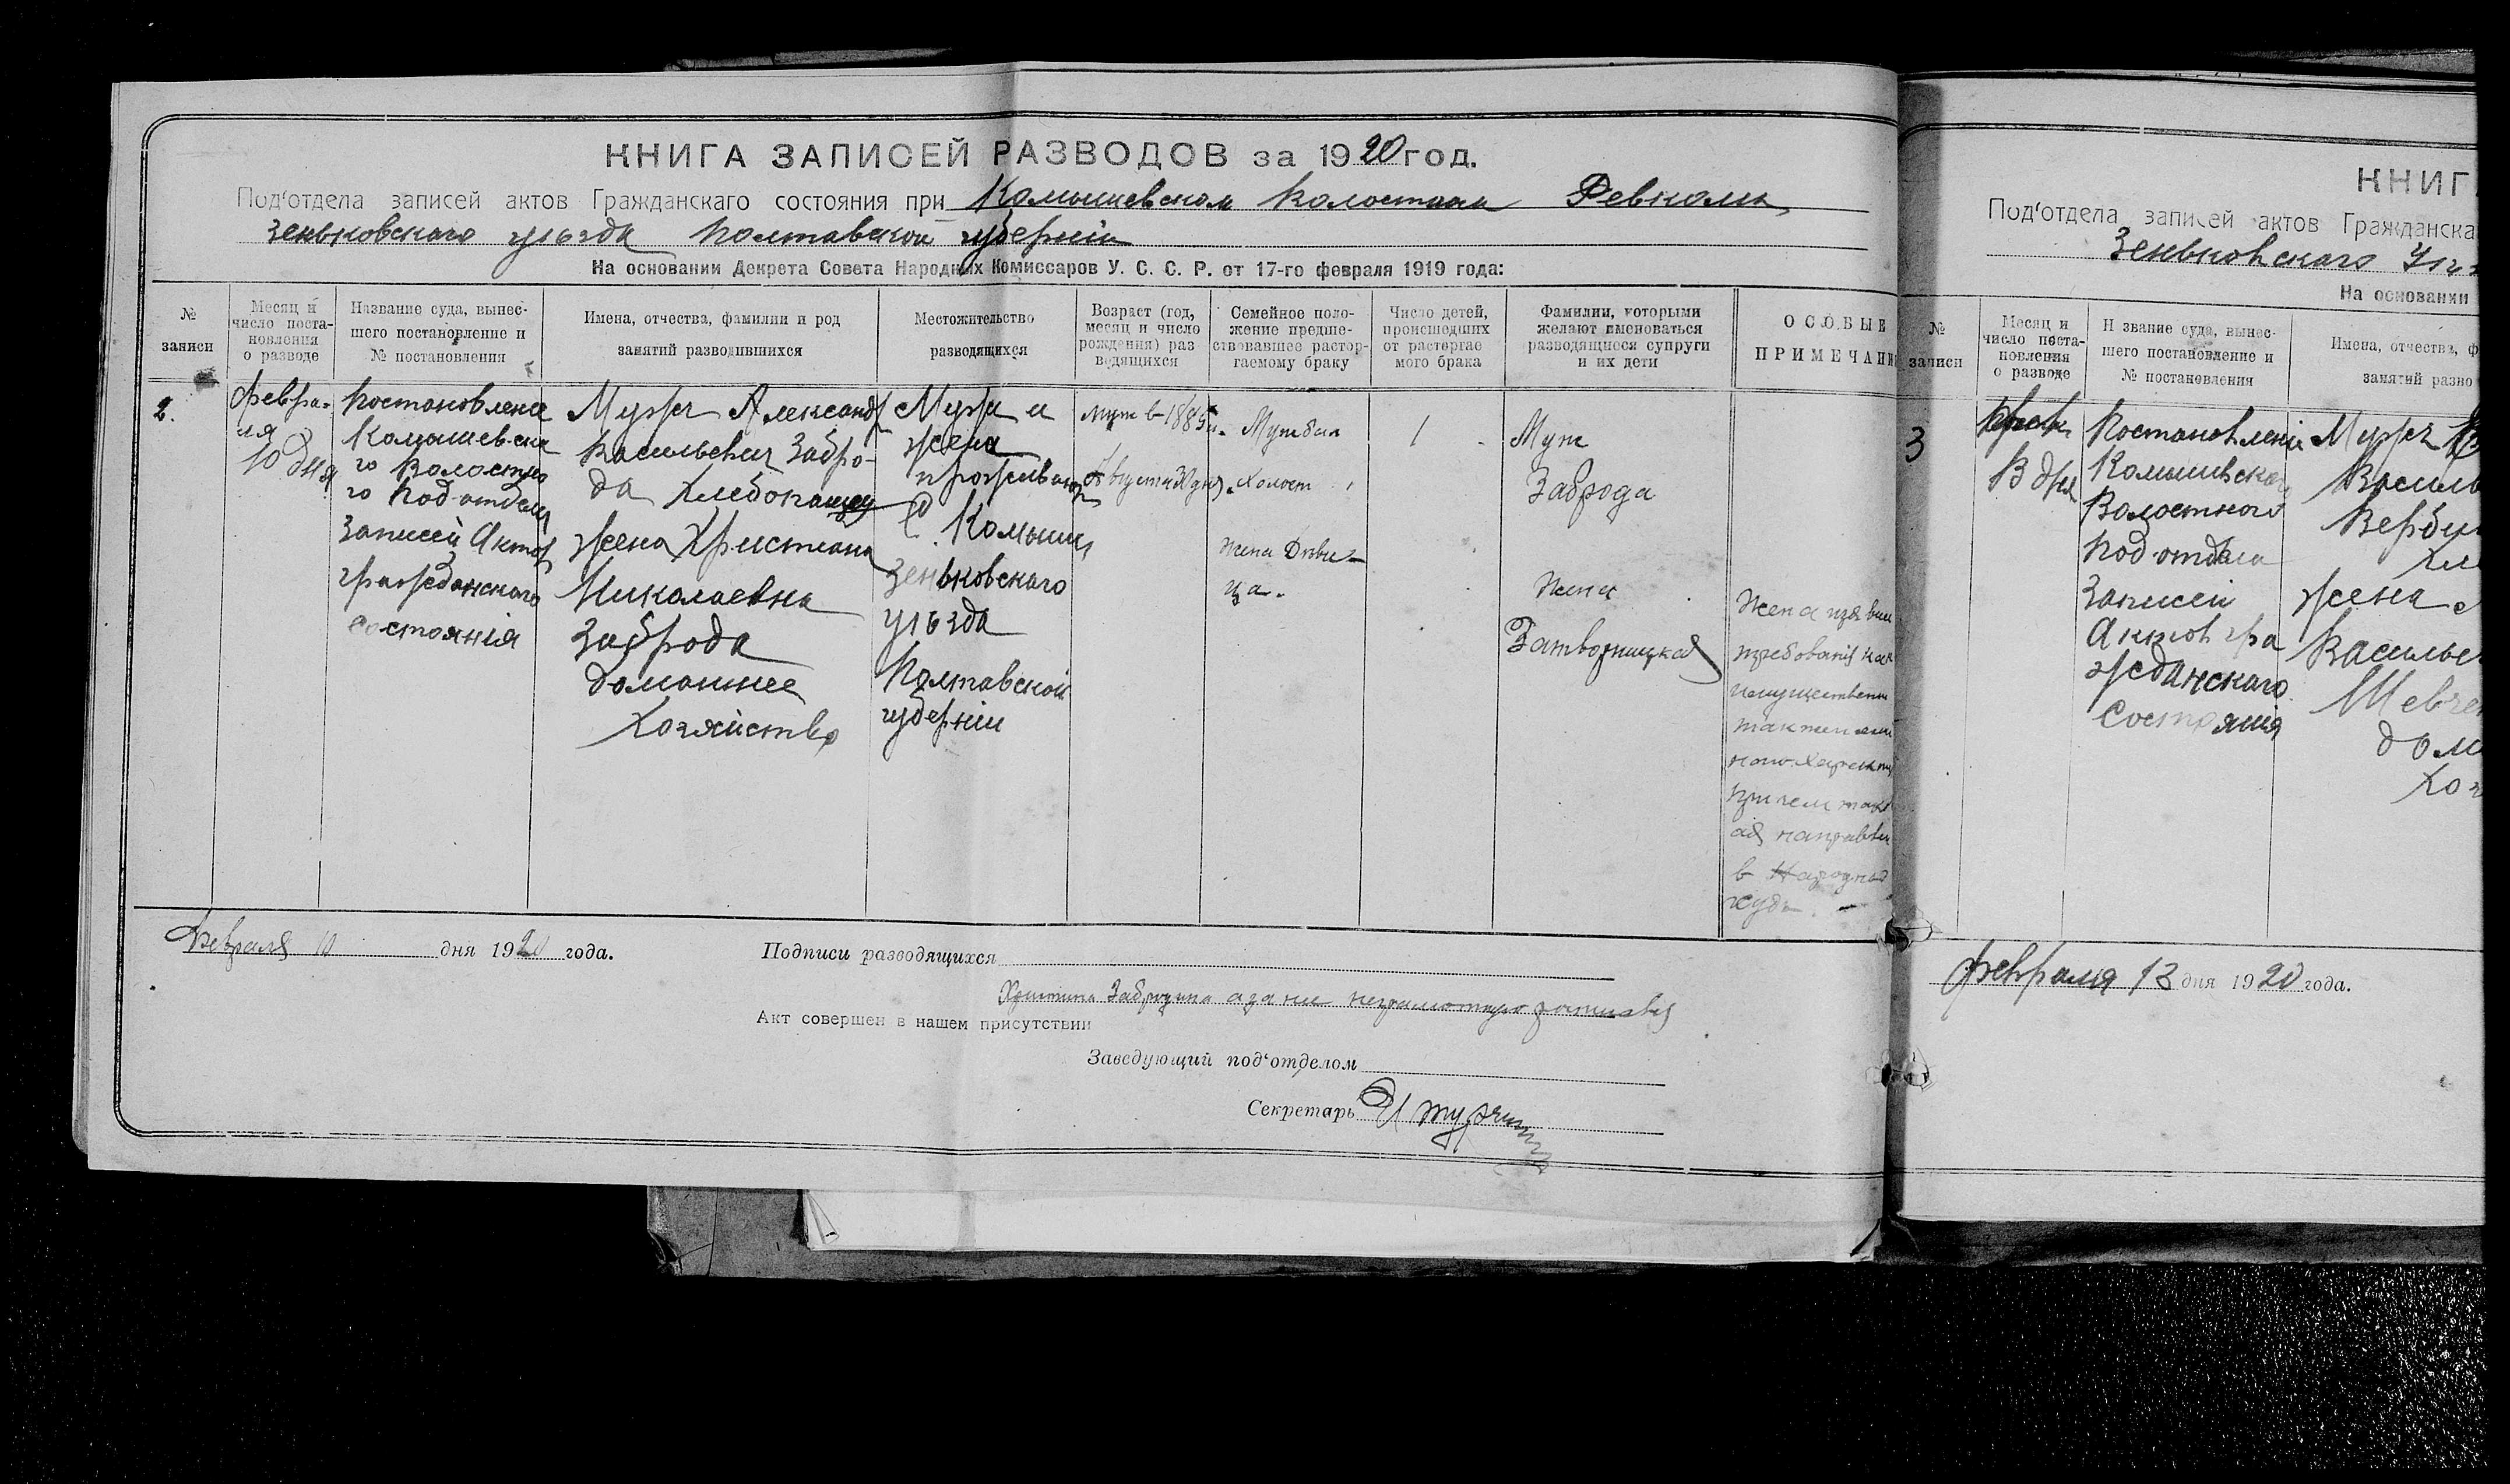 КНИГА ЗАПИСЕЙ РАЗВОДОВ за 1920 год.
Под'отдела записей актов Гражданскаго состояния при Комышевском Волостном Ревкоме
Зеньковского уѣзда Полтавской губерніи
На основании Декрета Совета Народных Комиссаров У. С. С. Р. от 17-го февраля 1919 года:
№
записи
Месяц и
число поста-
новления
о разводе
Название суда, вынес-
шего постановление и
№ постановления
Имена, отчества, фамилии и род
занятий разводившихся
Местожительство
разводящихся
Возраст (год,
месяц и число
рождения) раз
водящихся
Семейное поло-
жение предше-
ствовавшее растор-
гаемому браку
Число детей,
происшедших
от расторгае
мого брака
Фамилии, которыми
желают именоваться
разводящиеся супруги
и их дети
ОСОБЫЕ
ПРИМЕЧАНИ
2.
Февра-
ля
10 дня
Постановление
Комышевска
го Волостно
го Под-отдела
Записей Актов
гражданского
состоянія
Мужъ Александр
Васильевич Забро-
да Хлебопашец
жена Христиана
Николаевна
Заброда
домашнее
Хозяйство
Мужъ и
жена
проживают
С. Комыши
Зеньковского
уѣзда
Полтавской
губерніи
Муж в 1885 г.
Августа 30 дня
Муж был
холост
жена Дѣви-
ца.
1
Муж
Заброда
Жена
Затворницкая
Жена изяви
требования как
имуществен
так и
характ
причем
ая направлен
в Народный
суд. —
Февраля 10 дня 1920 года.
Подписи разводящихся
Христина Забродина а за ни неграмотную
Акт совершен в нашем присутствии
Заведующий под'отделом
Секретарь
КНИГ
Под'отдела записей актов Гражданска
Зеньковского Уѣз
На основании
№
записи
Месяц и
число поста-
новления
о разводе
Н звание суда, вынес-
шего постановление и
№ постановления
Имена, отчества, ф
занятий разво
3
Февр.
13 дня
Постановленіе
Комышевского
Волостного
Под-отдела
Записей
Актов гра
жданского
Состоянія
Мужъ
Василь
Вербиц
Хле
жена
Василье
Шевчен
дом
Хоз
Февраля 13 дня 1920 года.